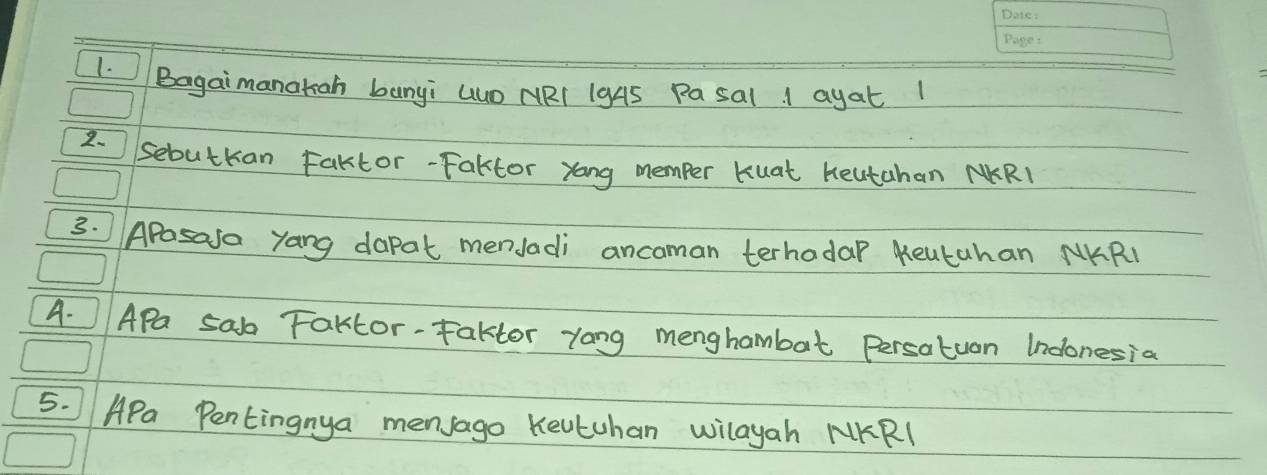 Date:
Page:
1. Bagaimanakah bunyi UUD NRI 1945 Pasal 1 ayat 1
2. Sebutkan Faktor-Faktor yang memperkuat keutuhan NKRI
3. Apasaja yang dapat menjadi ancaman terhadap keutuhan NKRI
4. Apa saja Faktor-Faktor yang menghambat Persatuan Indonesia
5. Apa Pentingnya menjaga keutuhan wilayah NKRI